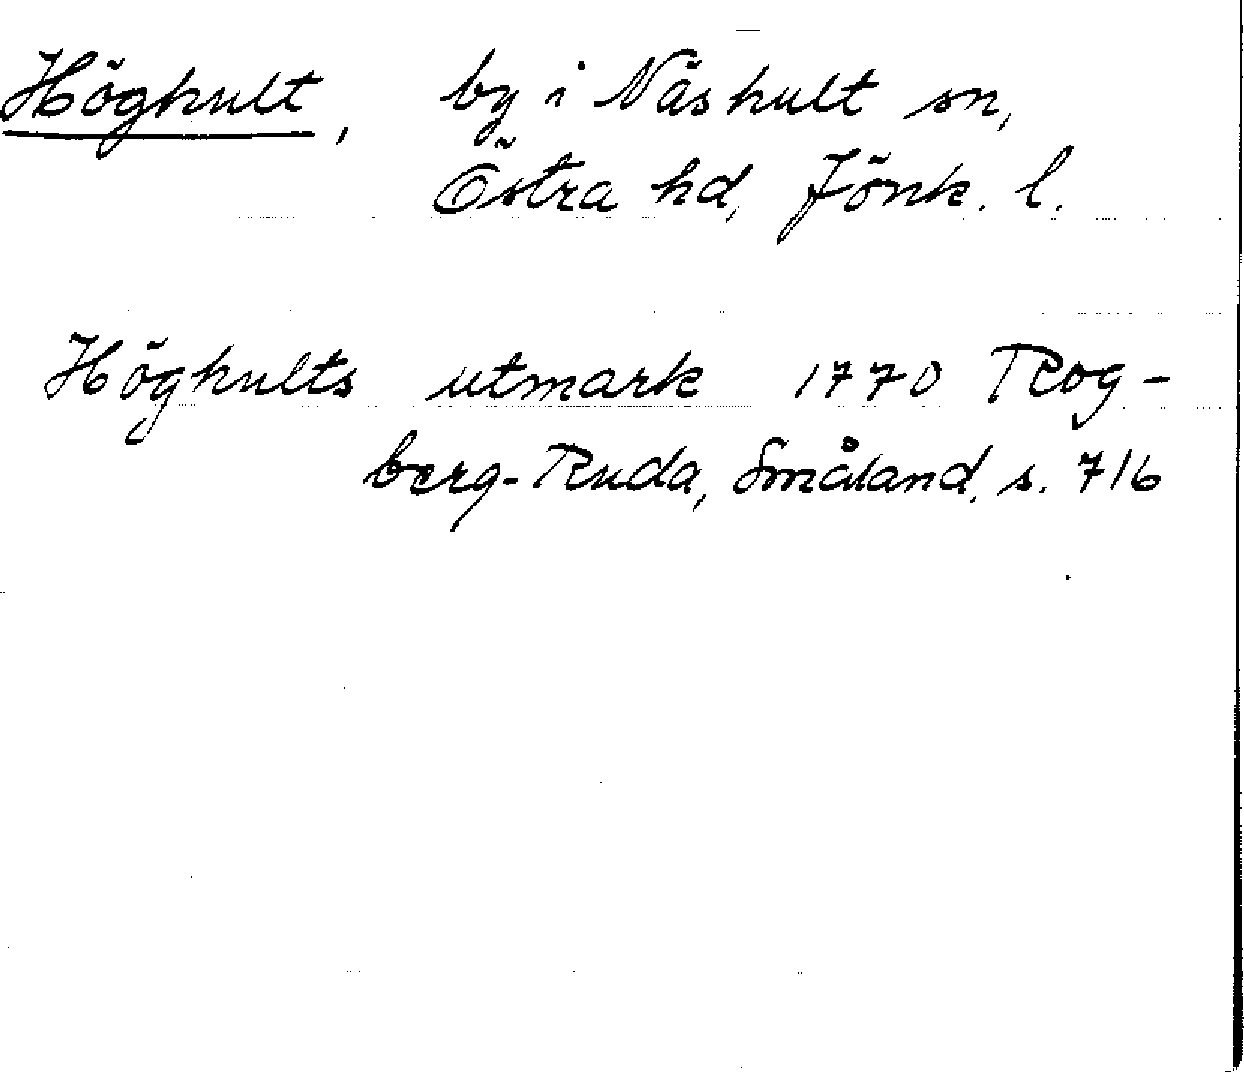 Höghult, by i Näshult sn,
Östra hd, Jönk. l.
Höghults utmark 1770 Rog-
berg-Ruda, Småland, s. 716